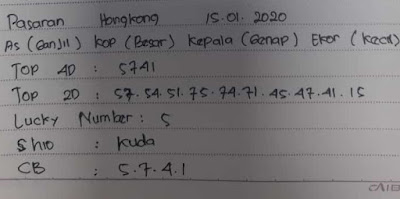 Pasaran Hongkong 15.01.2020
As (Ganjil) kop (Besar) kepala (Genap) Ekor (Kecil)
Top 4D : 5741
Top 2D : 57.54.51.75.74.71.45.47.41.15
Lucky Number : 5
Shio : kuda
CB : 5.7.4.1